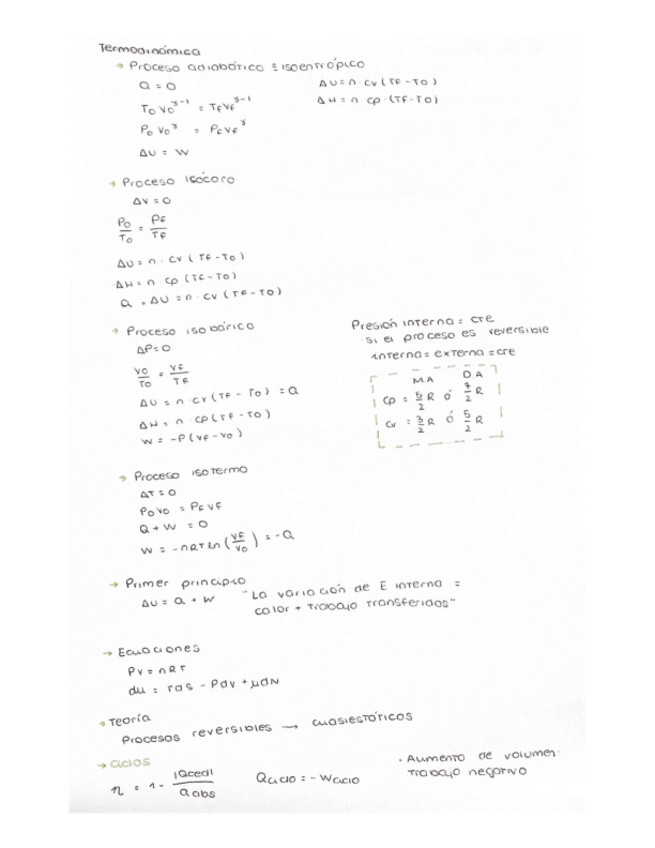 Termodinámica
→ Proceso adiabático ≡ isoentrópico
Q = 0
ΔU = n · cv (Tf - T0)
T0 V0^γ-1 = Tf Vf^γ-1
ΔH = n cp · (Tf - T0)
P0 V0^γ = Pf Vf^γ
ΔU = W
→ Proceso isócoro
ΔV = 0
P0/T0 = Pf/Tf
ΔU = n · cv (Tf - T0)
ΔH = n · cp (Tf - T0)
Q = ΔU = n · cv (Tf - T0)
→ Proceso isobárico
ΔP = 0
V0/T0 = Vf/Tf
ΔU = n · cv (Tf - T0) = Q
ΔH = n · cp (Tf - T0)
W = -P (Vf - V0)
Presión interna = cte
si el proceso es reversible
interna = externa = cte
MA DA
cp = 5/2 R ó 7/2 R
cv = 3/2 R ó 5/2 R
→ Proceso isotermo
ΔT = 0
P0 V0 = Pf Vf
Q + W = 0
W = -nRT ln (Vf/V0) = -Q
→ Primer principio
ΔU = Q + W
"La variación de E interna =
calor + trabajo transferidos"
→ Ecuaciones
PV = nRT
dU = TdS - PdV + μdN
→ Teoría
Procesos reversibles → cuasiestáticos
→ Ciclos
η = 1 - |Qced|/Qabs
Qciclo = - Wciclo
· Aumento de volumen
trabajo negativo